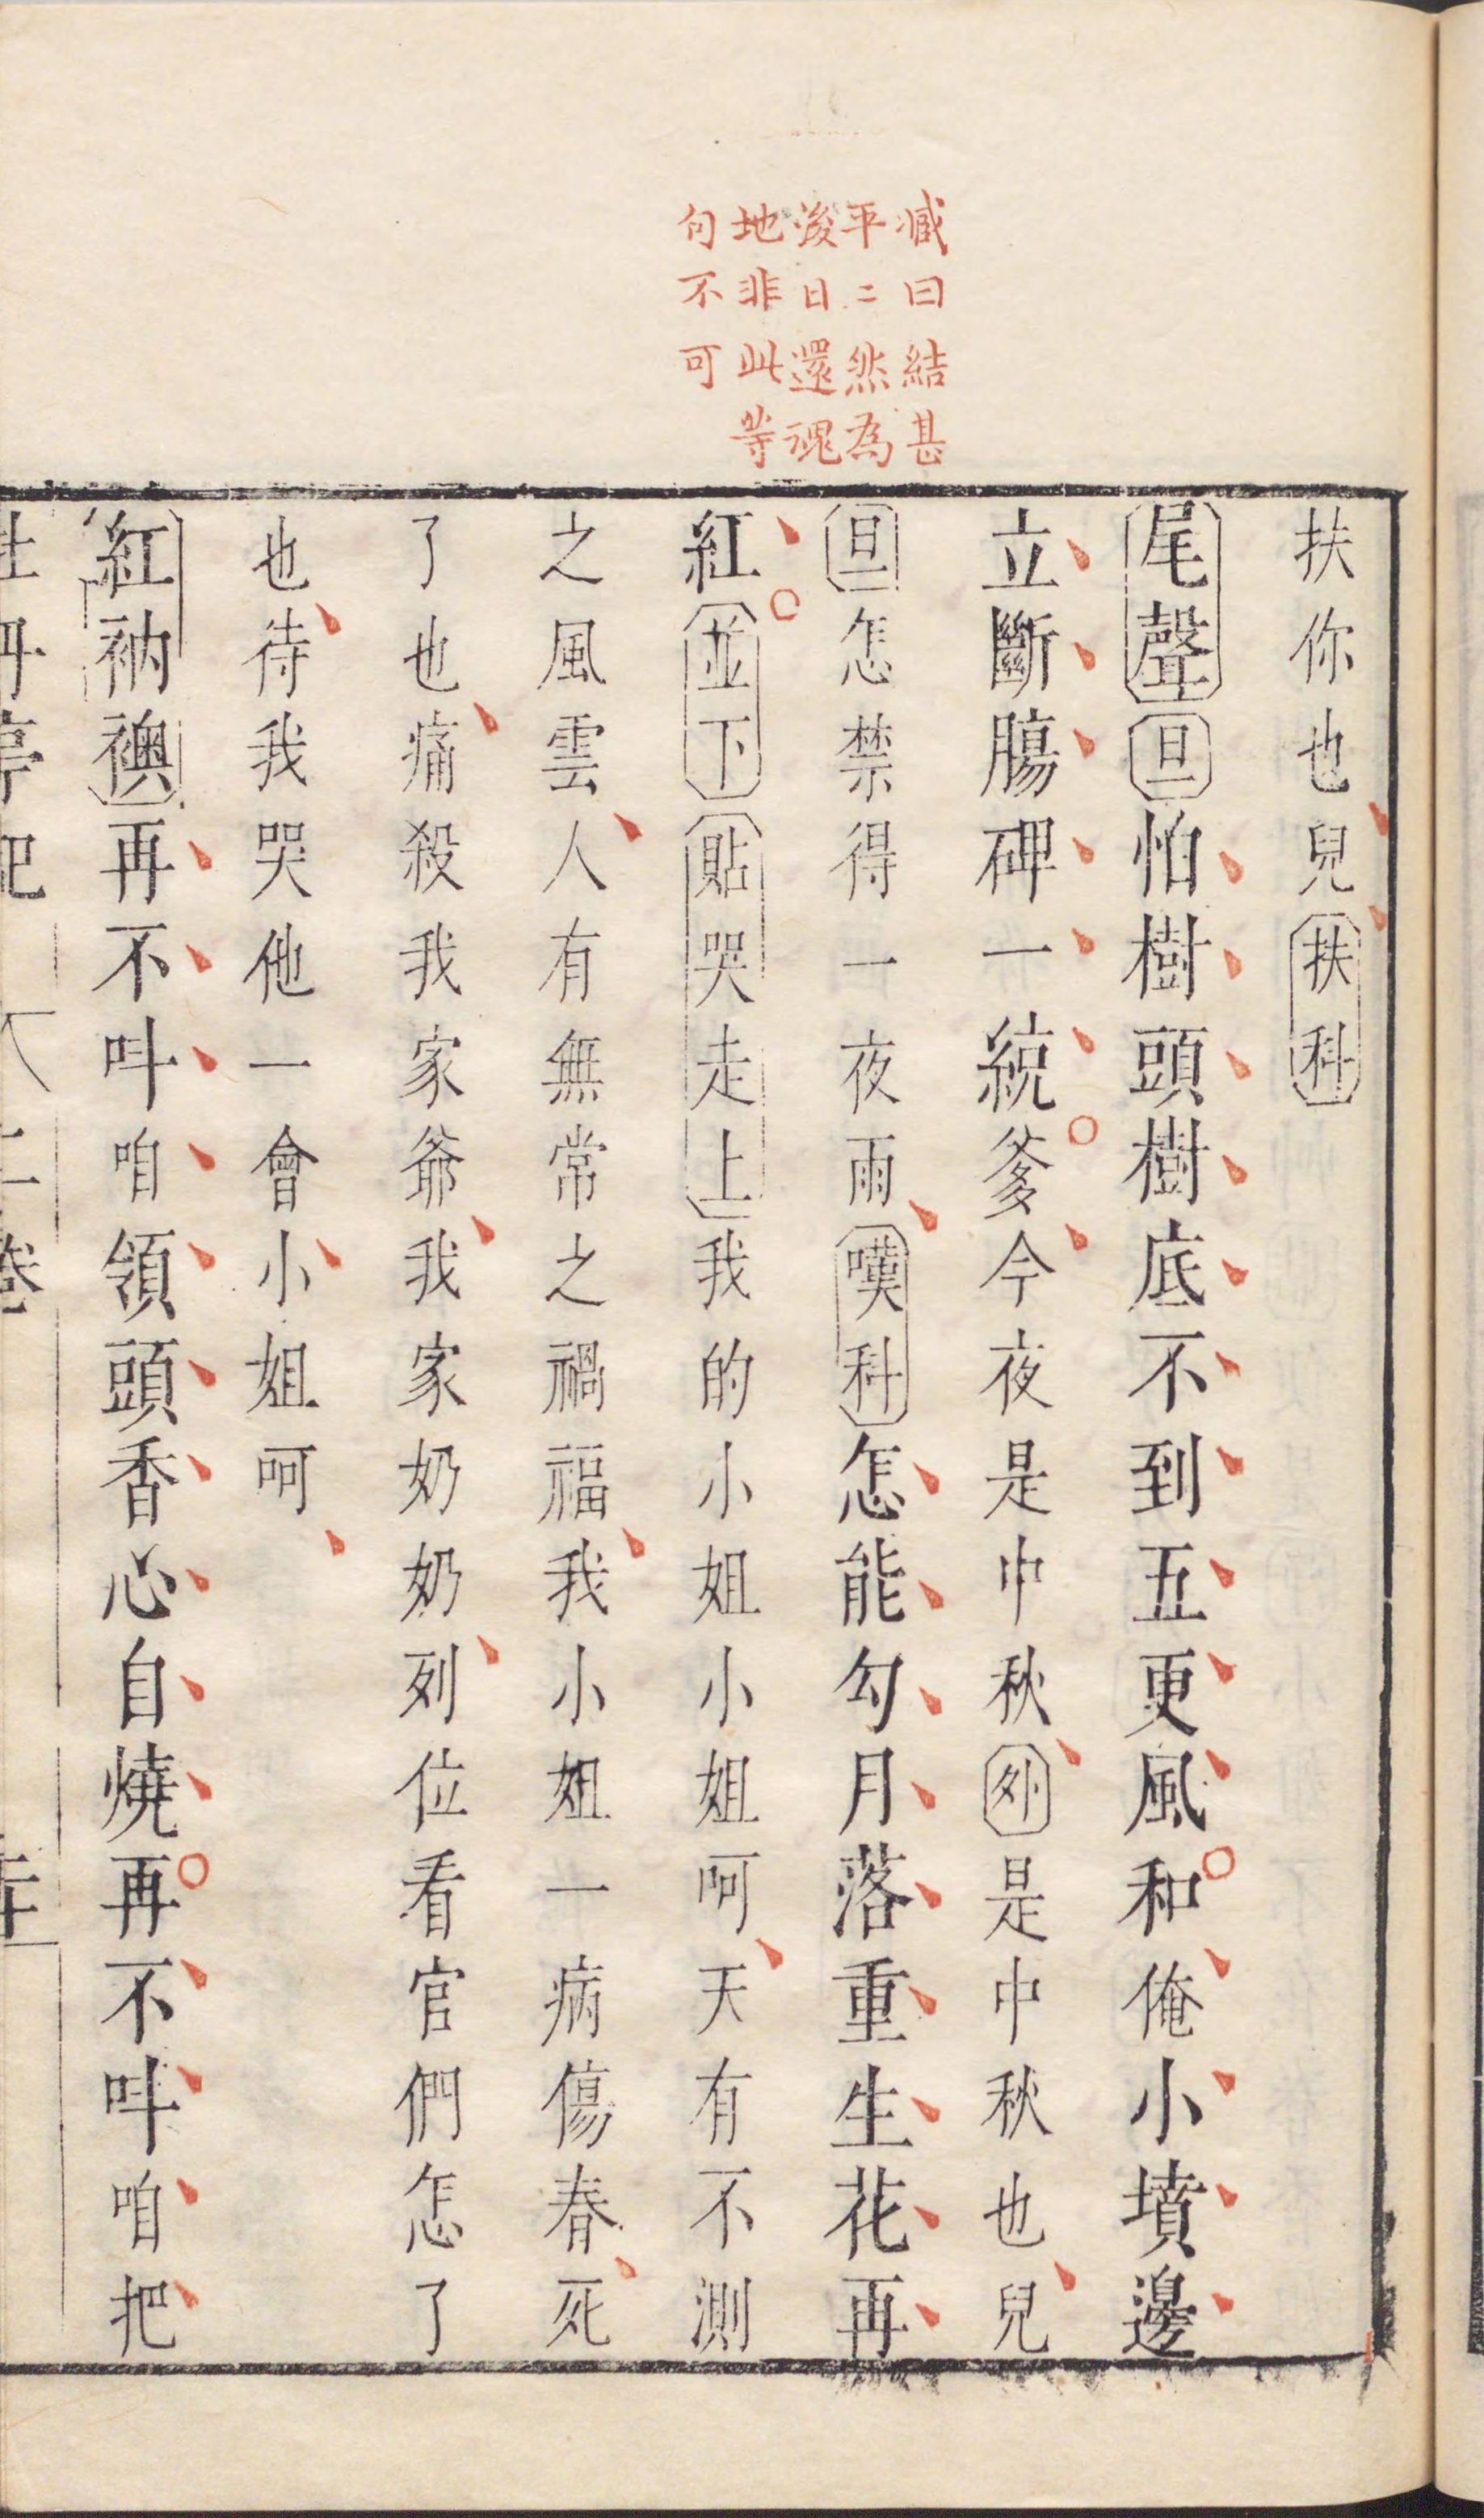 臧曰結甚
平二然為
後日還魂
地非此等
句不可
扶你也兒扶科
尾聲旦怕樹頭樹底不到五更風和俺小墳邊
立斷腸碑一統爹今夜是中秋外是中秋也兒
旦怎禁得一夜雨嘆科怎能勾月落重生花再
紅並下貼哭走上我的小姐小姐呵天有不測
之風雲人有無常之禍福我小姐一病傷春死
了也痛殺我家爺我家奶奶列位看官們怎了
也待我哭他一會小姐呵
紅衲襖再不呌咱領頭香心自燒再不呌咱把
牡丹亭記
上卷